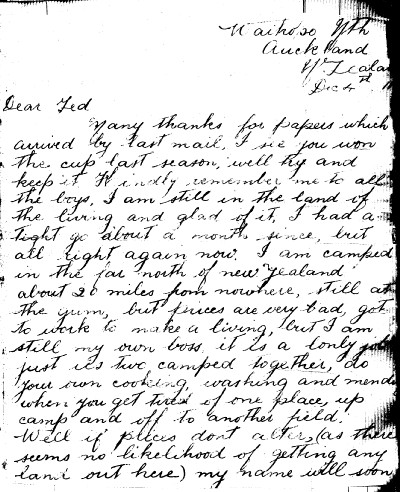 Waihopo Nth
Auckland
N. Zealan
Dec 4th
Dear Ted
Many thanks for papers which
arrived by last mail, I see you won
the cup last season, well try and
keep it. Kindly remember me to all
the boys, I am still in the land of
the living and glad of it, I had a
tight go about a month since, but
all right again now. I am camped
in the far north of new Zealand
about 20 miles from nowhere, still at
the gum, but prices are very bad, got
to work to make a living, but I am
still my own boss, it is a lonly job
just us two camped together, do
your own cooking, washing and mend
when you get tired of one place, up
camp and off to another field.
Well if prices dont alter, (as there
seems no likelihood of getting any
land out here) my name will soon